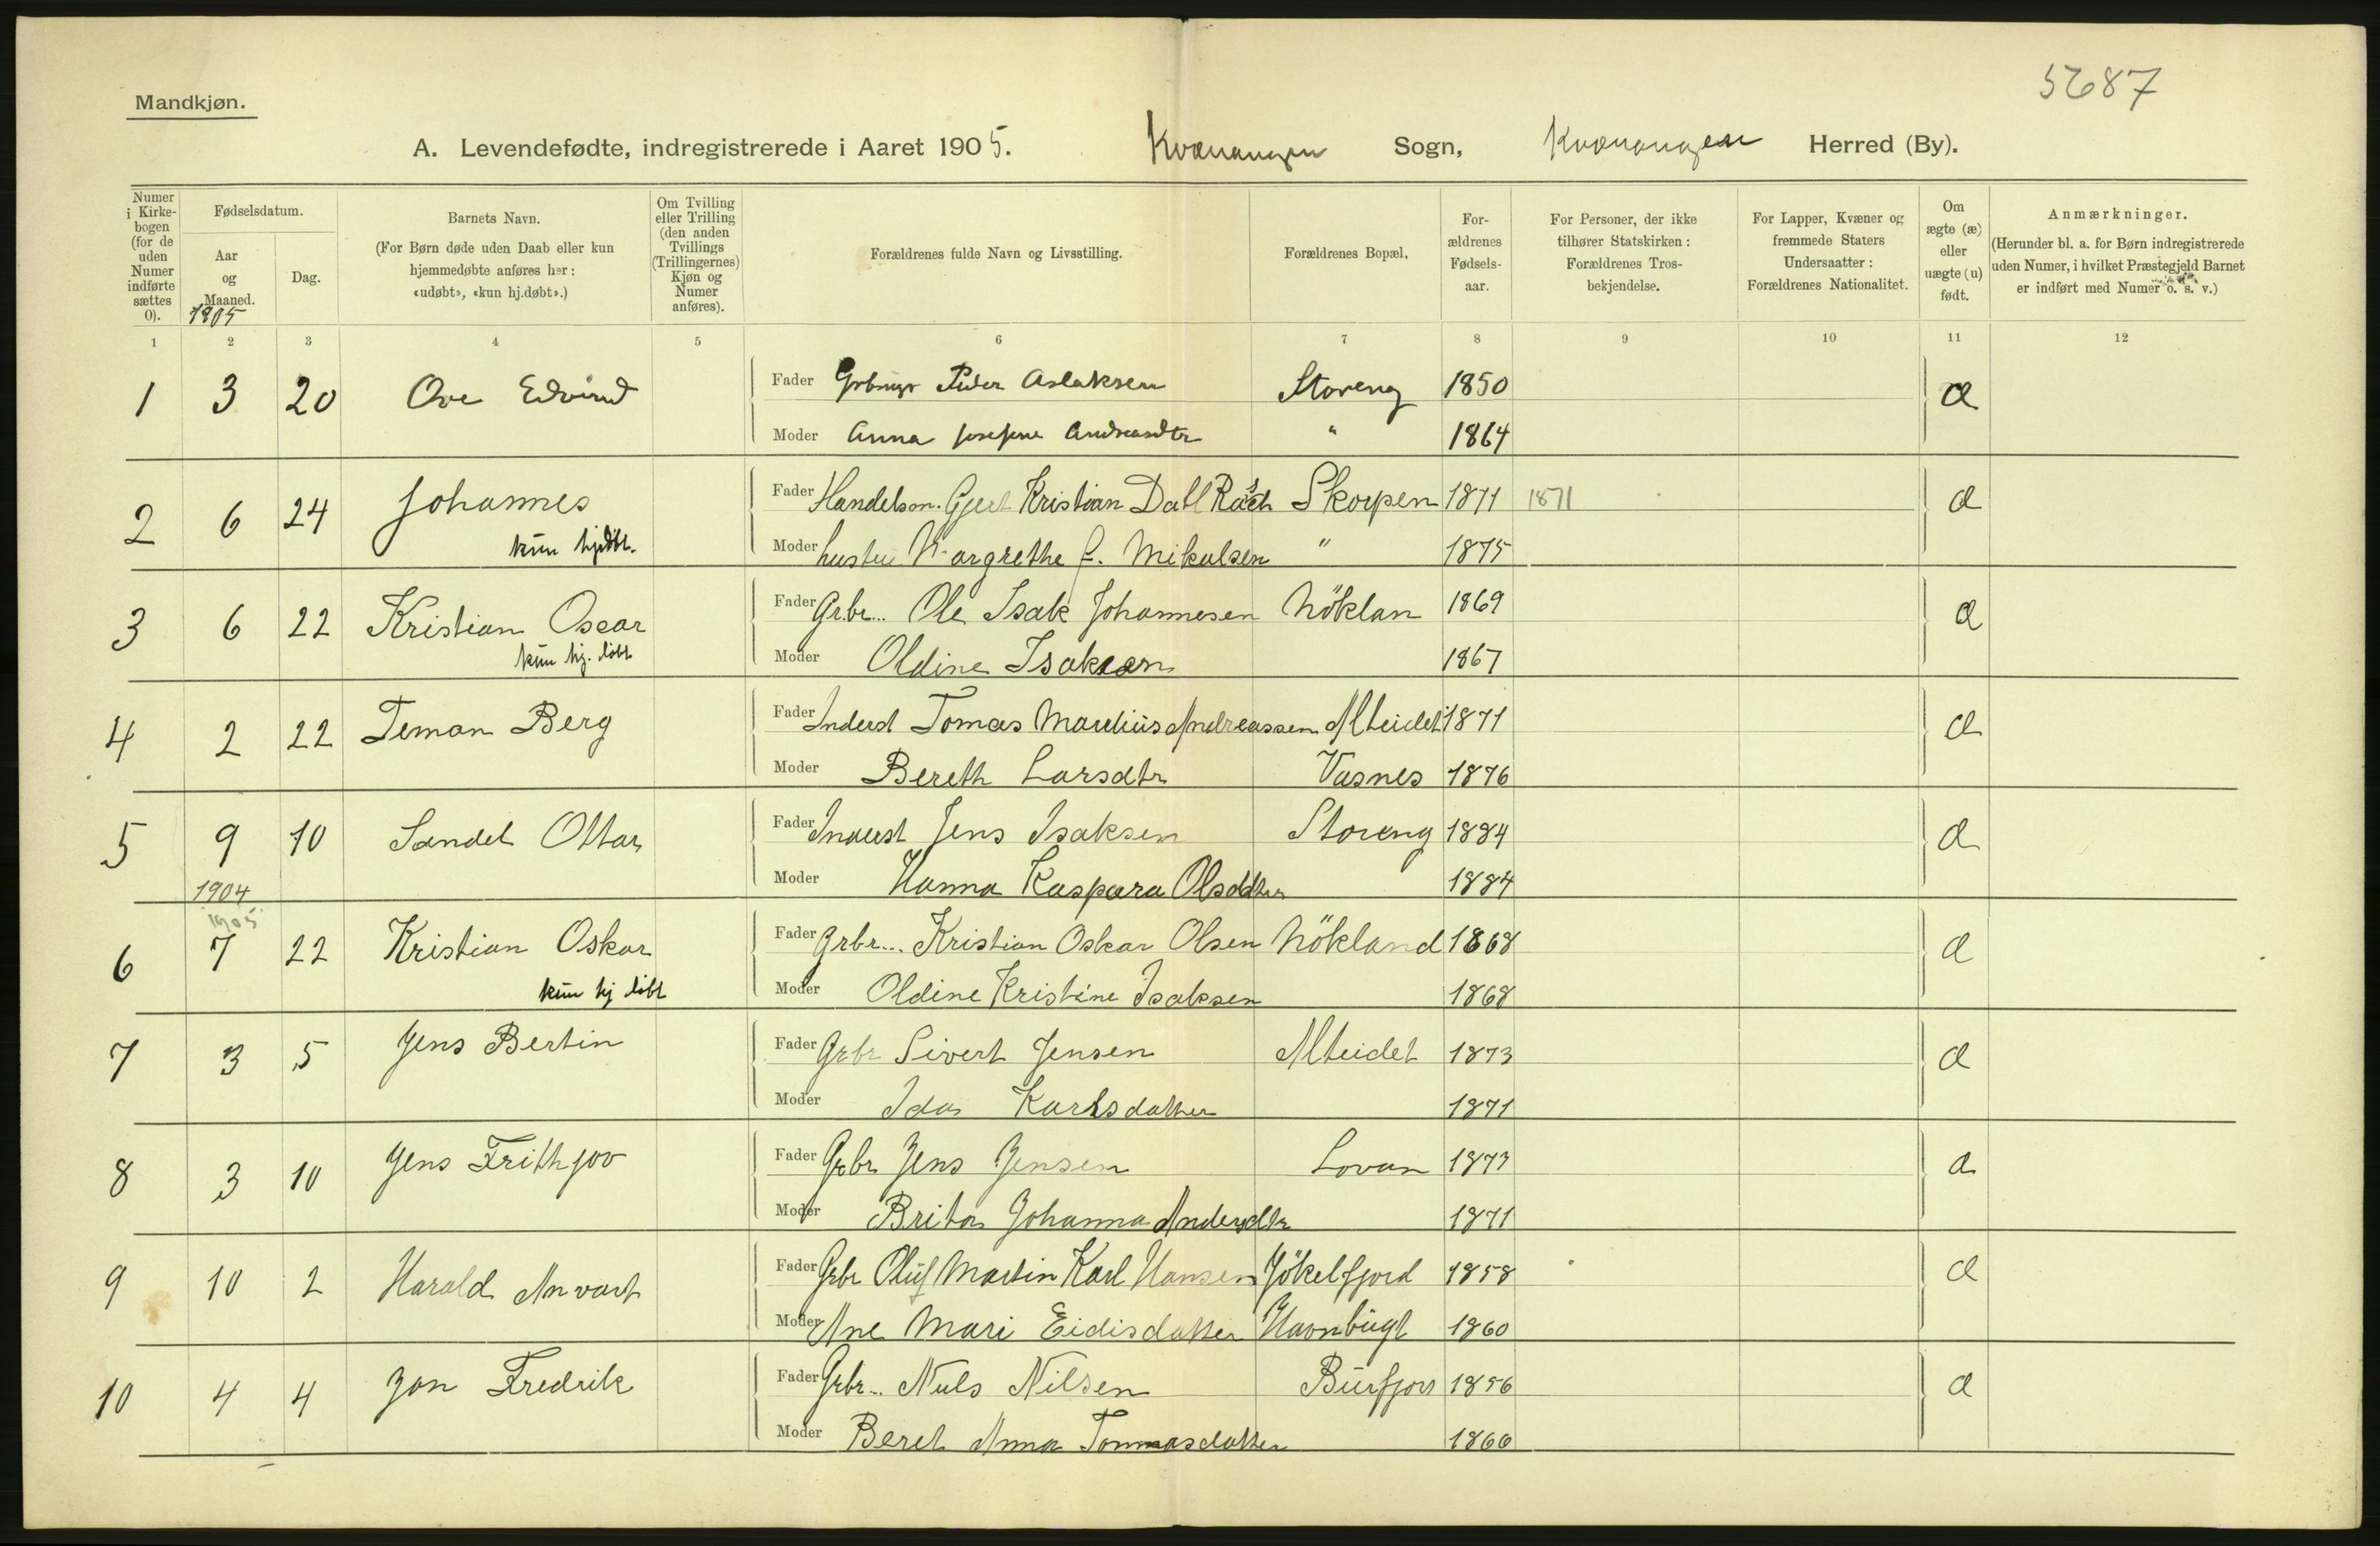 5687
Mandkjøn.
A. Levendefødte, indregistrerede i Aaret 1905. Kvænangen Sogn, Kvænangen Herred (By).
Numer i Kirkebogen (for de uden Numer indførte sættes 0).
Fødselsdatum.
Aar og Maaned.
1905
Dag.
Barnets Navn.
(For Børn døde uden Daab eller kun
hjemmedøbte anføres her:
«udøbt», «kun hj.døbt».)
Om Tvilling eller Trilling (den anden Tvillings (Trillingernes) Kjøn og Numer anføres).
Forældrenes fulde Navn og Livsstilling.
Forældrenes Bopæl,
For-
ældrenes
Fødsels-
aar.
For Personer, der ikke
tilhører Statskirken:
Forældrenes Tros-
bekjendelse.
For Lapper, Kvæner og
fremmede Staters
Undersaatter:
Forældrenes Nationalitet.
Om
ægte (æ)
eller
uægte (u)
født.
Anmærkninger.
(Herunder bl. a. for Børn indregistrerede
uden Numer, i hvilket Præstegjeld Barnet
er indført med Numer o. s. v.)
1 2 3 4 5 6 7 8 9 10 11 12
1 3 20 Ove Edvind Fader Peder Aslaksen Storeng 1850 æ
Moder Anna Josefine Andreasdtr " 1864
2 6 24 Johannes Fader Handelsm. Gjert Kristian Dall Rasch Skorpen 1871 1871 æ
kun hjdøbt. Moder hustru Margrethe f. Mikalsen " 1875
3 6 22 Kristian Oscar Fader Grbr... Ole Isak Johannesen Nöklan 1869 æ
kun hj. döbt Moder Oldine Isaksen 1867
4 2 22 Teman Berg Fader Inderst Tomas Mareliüs Andreassen Alteidet 1871 æ
Moder Bereth Larsdtr Vasnes 1876
5 9 10 Sandel Ottar Fader Inderst Jens Isaksen Storeng 1884 æ
1904 Moder Hanna Kaspara Olsdatter 1884
1905
6 7 22 Kristian Oskar Fader Grbr... Kristian Oskar Olsen Nökland 1868 æ
kun hj döbt Moder Oldine Kristine Isaksen 1868
7 3 5 Jens Bertin Fader Grbr Sivert Jensen Alteidet 1873 æ
Moder Ida Karlsdatter 1871
8 3 10 Jens Frithjov Fader Grbr Jens Jensen Lovan 1873 æ
Moder Brita Johanna Andersdtr 1871
9 10 2 Harald Anvart Fader Grbr Olüf Martin Karl Hansen Jökelfjord 1858 æ
Moder Ane Mari Eidisdatter Havnbügt 1860
10 4 4 Jon Fredrik Fader Grbr... Nuls Nilsen Bürfjord 1856 æ
Moder Beret Anna Tommasdatter 1866